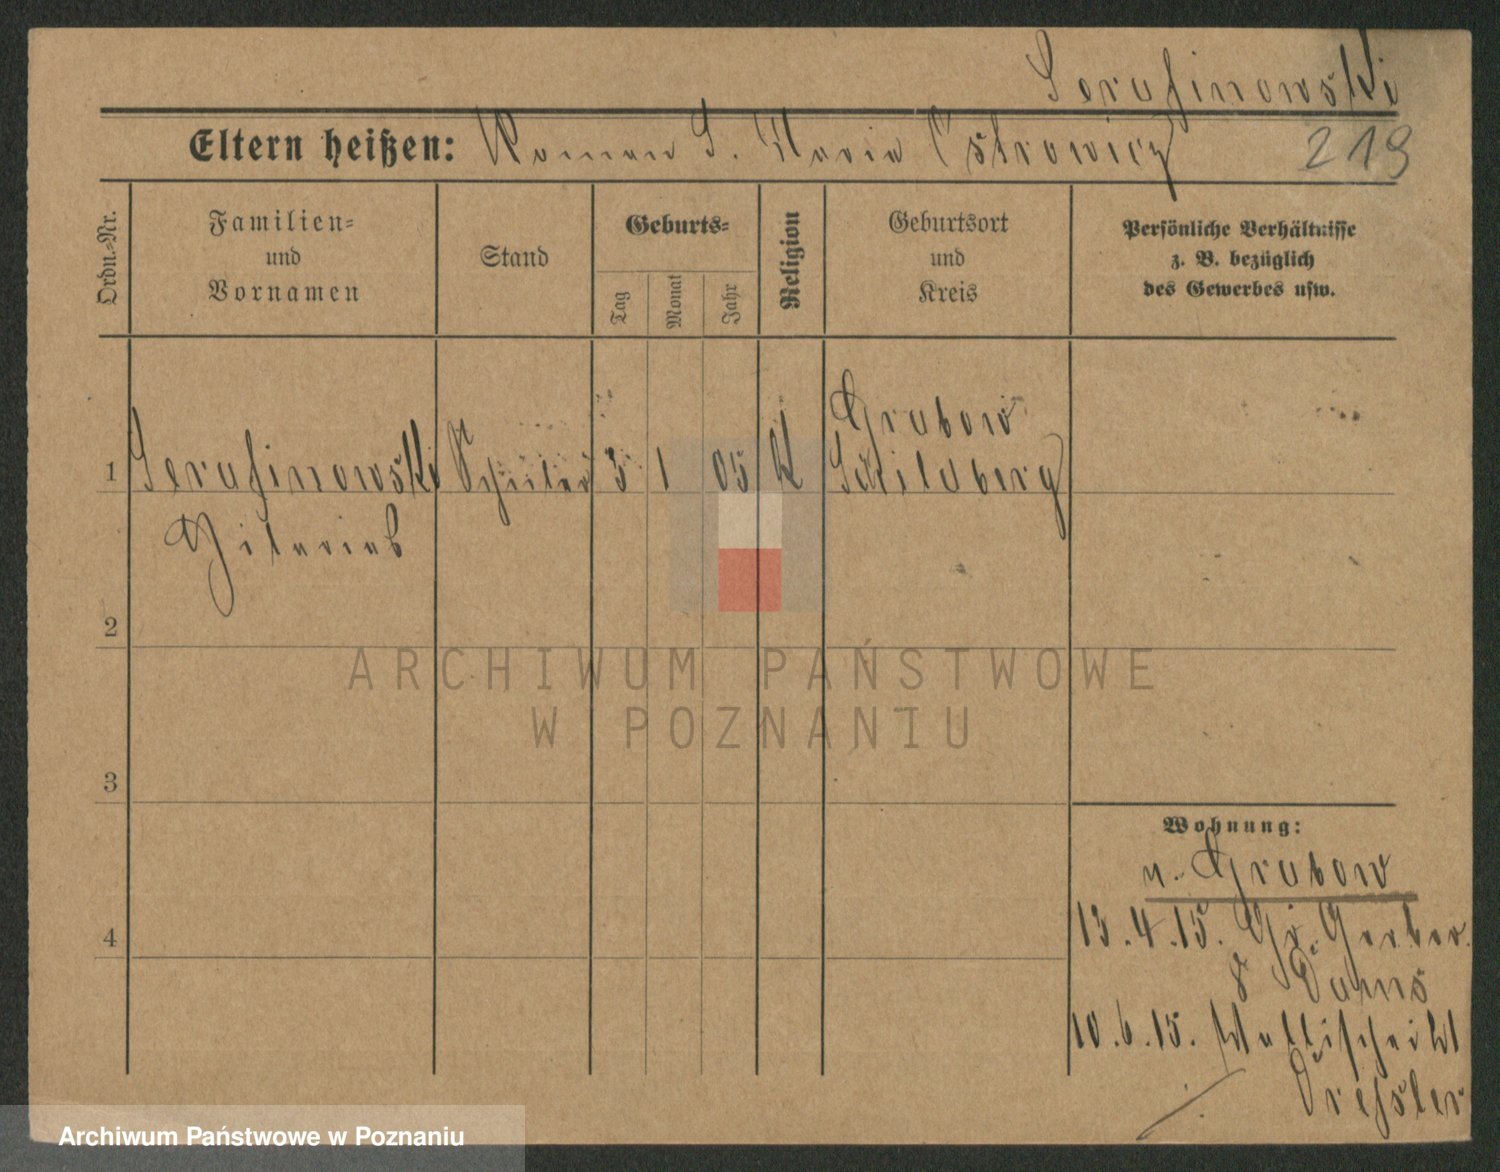 Serafinowski
Eltern heißen: Roman S. Maria Ostrowicz
219
Ordn.-Nr.
Familien-
und
Vornamen
Stand
Geburts-
Tag
Monat
Jahr
Religion
Geburtsort
und
Kreis
Persönliche Verhältnisse
z. B. bezüglich
des Gewerbes usw.
Grabow
1 Serafinowski Schüler 3 1 05 K Schildberg
Hilarius
2
3
4
Wohnung:
v. Grabow
13.4.15. Gr. Gerber
8 Dams
10.6.15. Wallischei
Dressler
ARCHIWUM PAŃSTWOWE
W POZNANIU
Archiwum Państwowe w Poznaniu